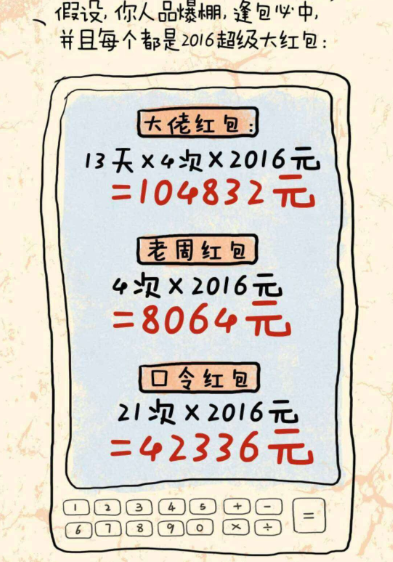 假设,你人品爆棚,逢包必中,
并且每个都是2016超级大红包:
大佬红包:
13天×4次×2016元
=104832元
老周红包
4次×2016元
=8064元
口令红包
21次×2016元
=42336元
1 2 3 4 5 + -
6 7 8 9 0 × ÷ =